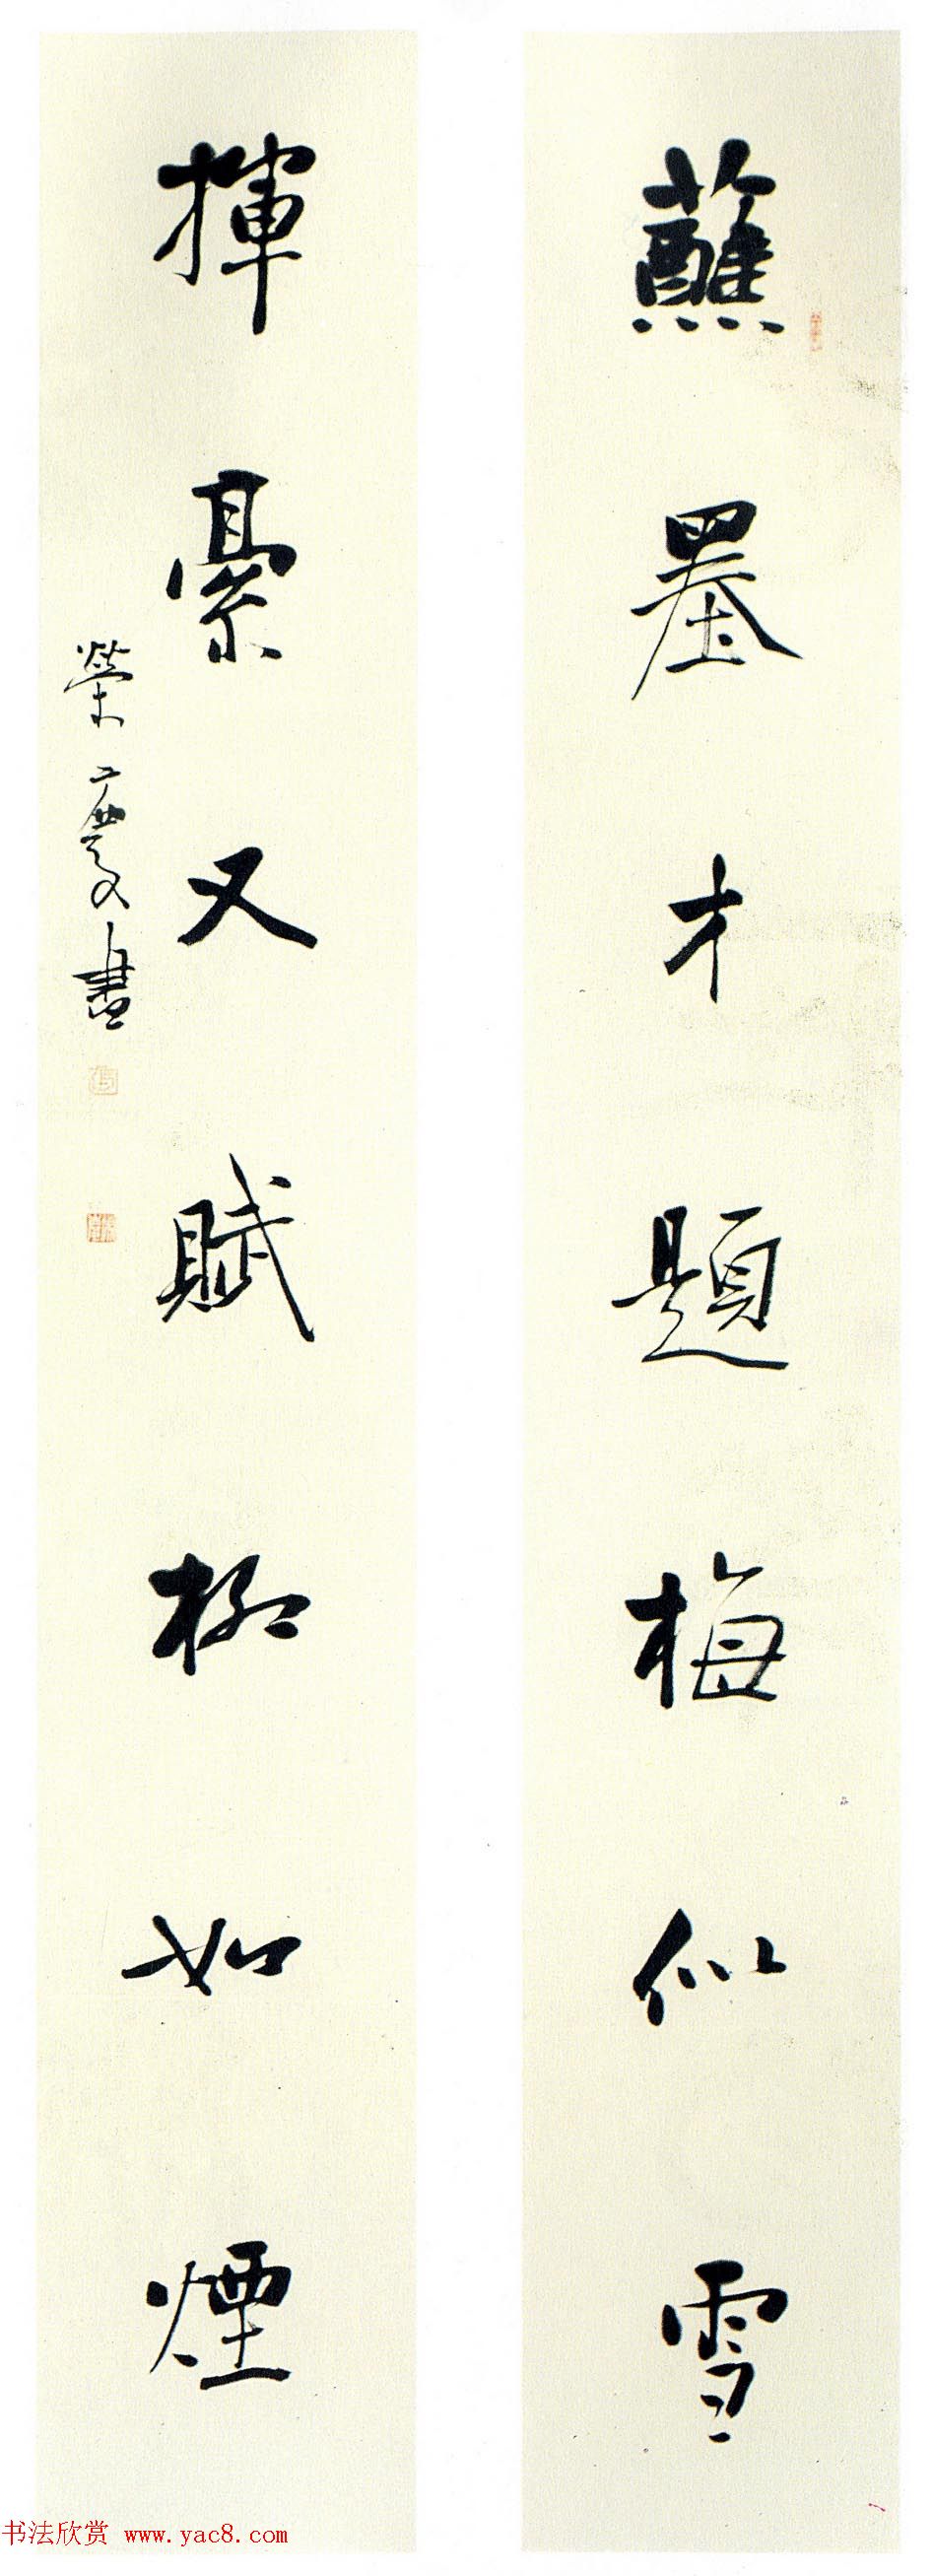 蘸墨才題梅似雪
揮豪又賦柳如煙
榮慶書
书法欣赏 www.yac8.com